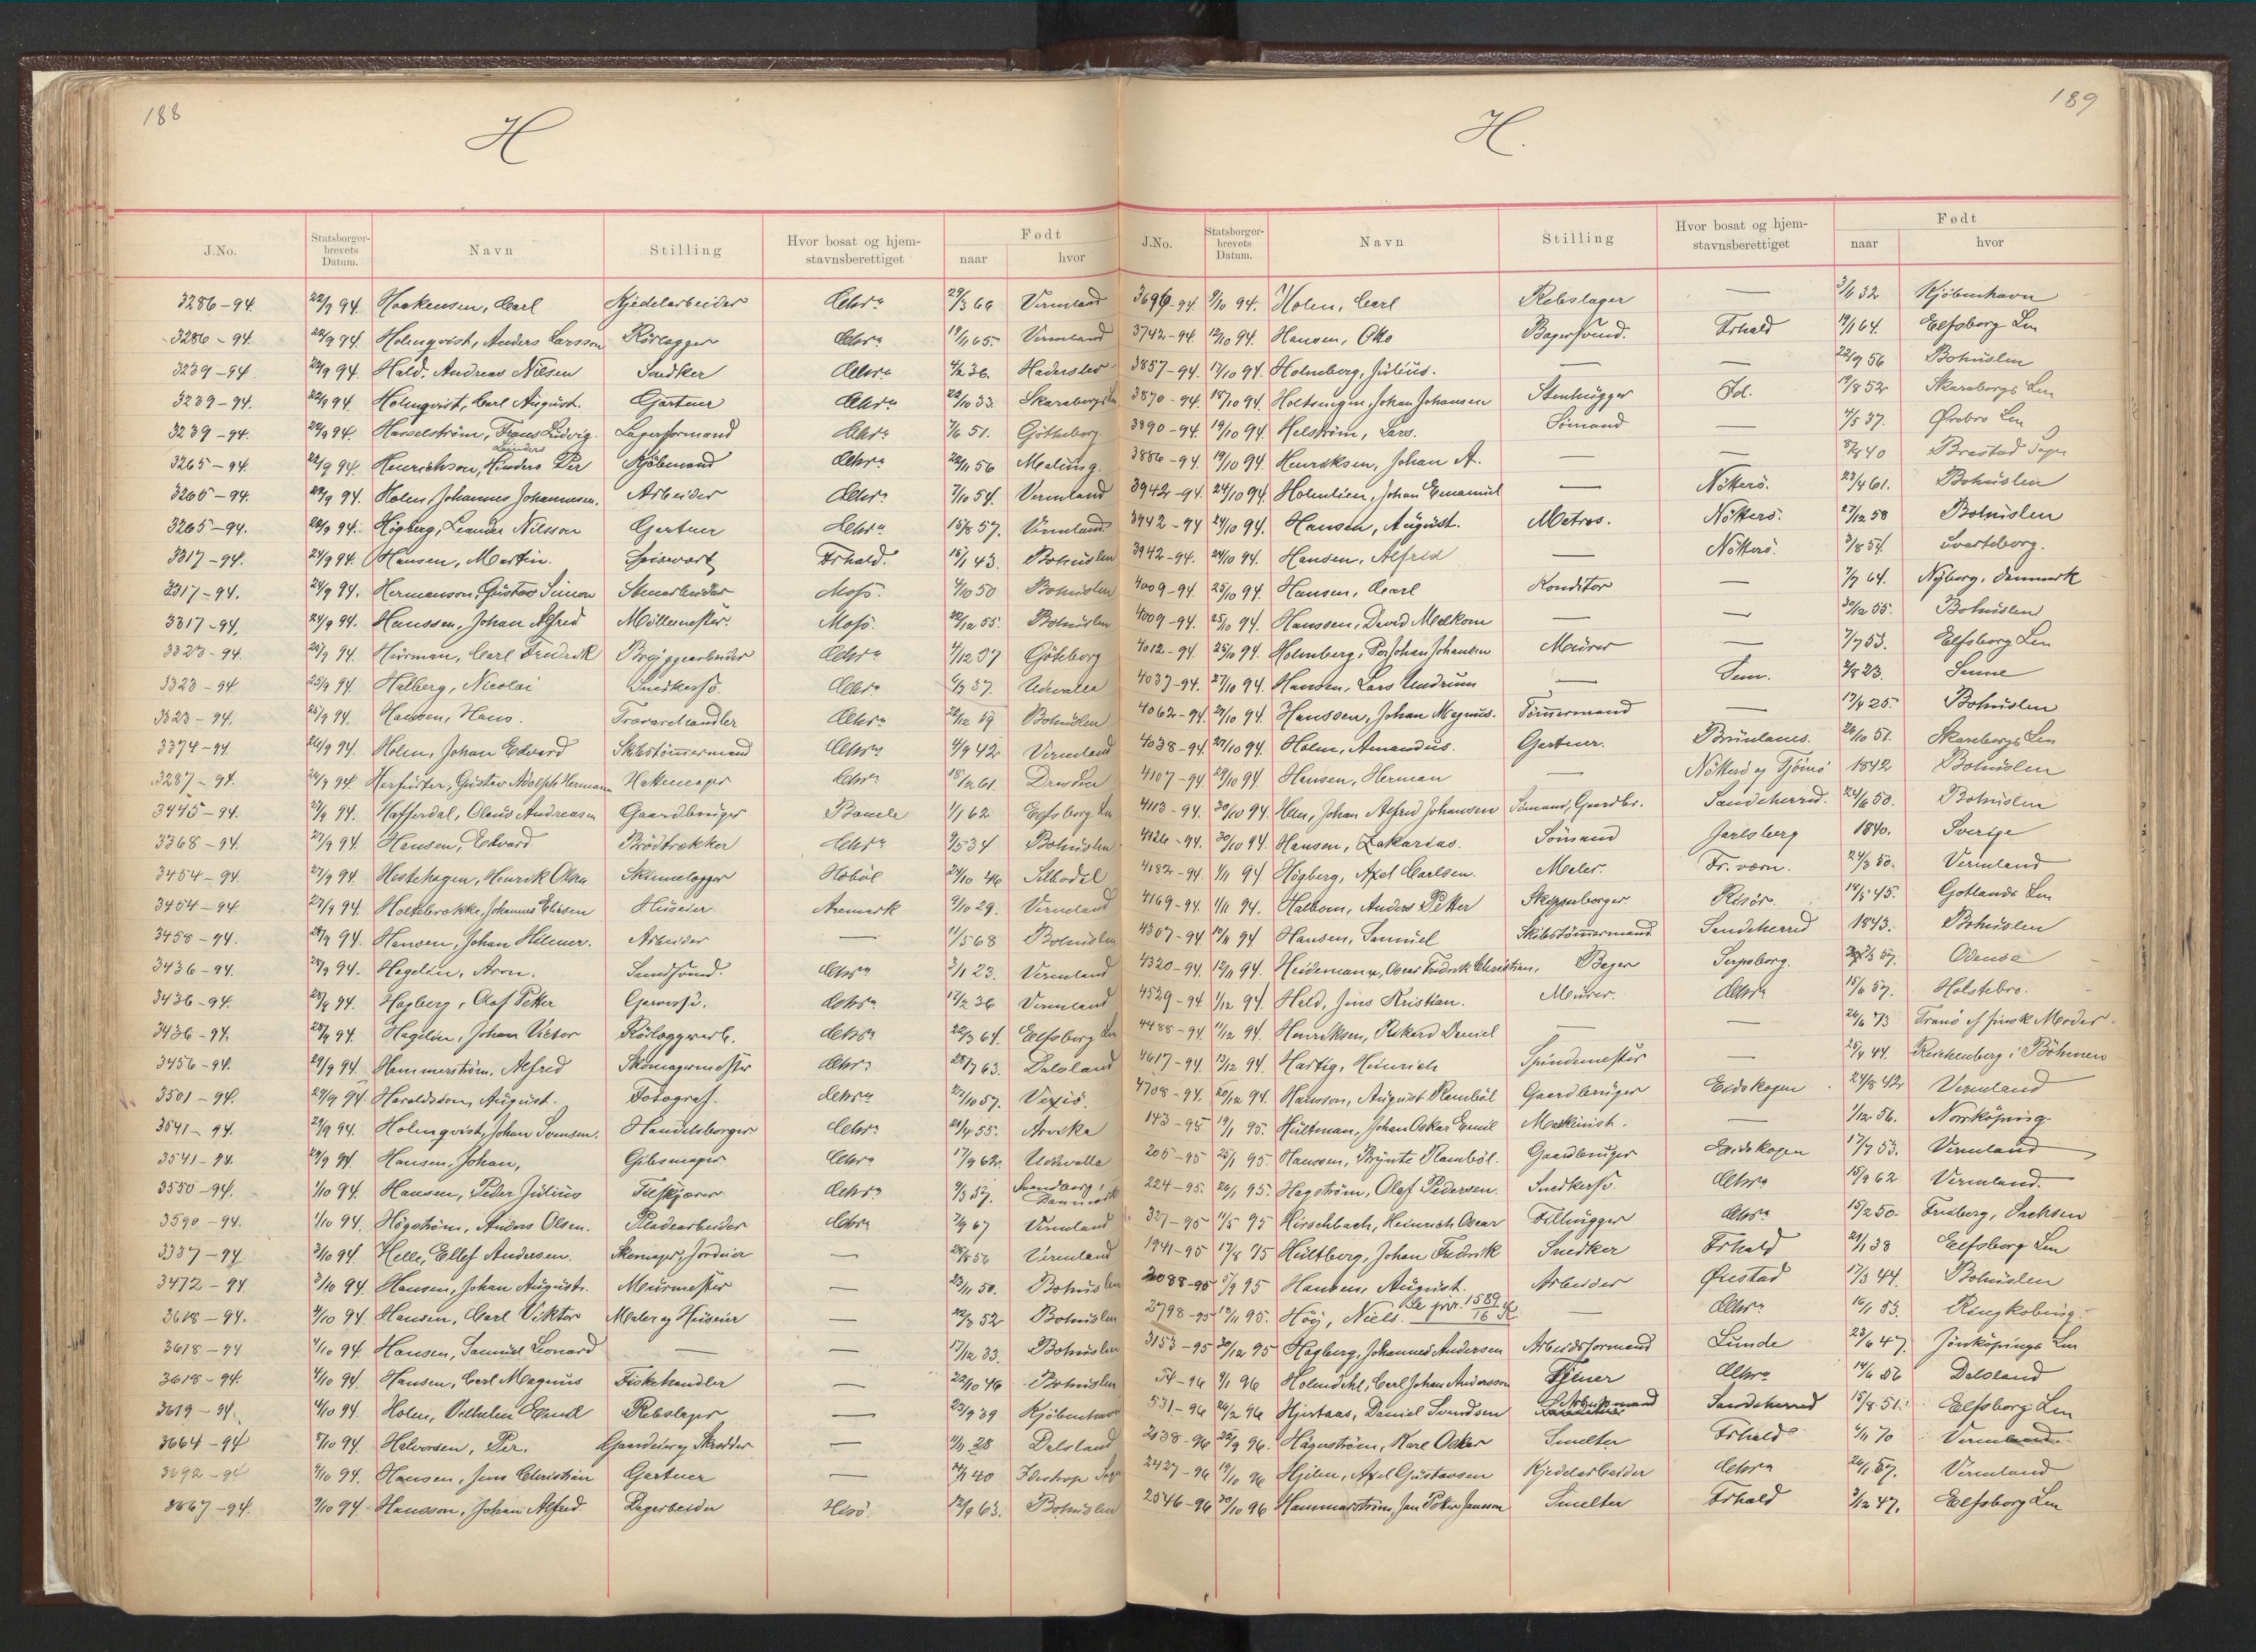 188
H
J.No. Statsborger-brevets Datum. Navn Stilling Hvor bosat og hjem-stavnsberettiget Født naar hvor
3286-94. 22/9 94. Haakensen, Carl Kjedelarbeider Chra 29/3 66 Vermland
3286-94. 22/9 94. Holmqvist, Anders Larsson Rörlægger Chra 19/1 65. Vermland
3239-94 22/9 94. Hald, Andreas Nilsen Snedker Chra 4/2 36. Haderslev
3239-94. 22/9 94. Holmqvist, Carl August. Gartner Chra 22/10 33. Skaraborgs Ln
3239-94. 22/9 94. Hasselström, Frans Ludvig. Lagerformand Chra 7/6 51. Götheborg.
3265-94 22/9 94. Henrichson, Per Kjöbmand Chra 22/11 56
3265-94. 22/9 94. Holen, Johannes Johannesen. Arbeider Chra 7/10 54. Vermland
3265-94. 22/9 94. Högberg, Leander Nilsson Gartner Chra 15/8 57. Vermland
3317-94. 24/9 94. Hansen, Martin. Spisevært Frhald. 15/1 43. Bohuslen
3317-94. 24/9 94. Hermanson, Gustav Simon Stenarbeider Moss. 4/10 50 Bohuslen
3317-94. 24/9 94. Hanssen, Johan Alfred Möllemester. Moss. 22/12 55. Bohuslen
3323-94. 25/9 94. Hurman, Carl Fredrik Bryggearbeider Chra 4/12 37 Göteborg
3323-94 25/9 94. Halberg, Nicolai Snedkersv. Chra 6/3 37. Udevalla
3323-94. 25/9 94. Hansen, Hans. Trævarehandler Chra 22/12 59 Bohuslen
3374-94. 26/9 94. Holm, Johan Edvard Skibstömmermand Chra 4/9 42 Vermland
3287-94. 26/9 94. Herfurter, Gustav Adolph Hermann Hattemager Chra 18/12 61. Dresden
3445-94. 27/9 94. Hafferdal, Olaus Andreasen Gaardbruger Bamle 1/1 62 Elfsborg Ln
3368-94. 27/9 94. Hansen, Edvard. Brödtrækker Chra 9/5 34 Bohuslen
3454-94. 27/9 94. Hestehagen, Henrik Olsen Skinnelægger Hobøl 24/10 46 Silbodal
3454-94 27/9 94. Holtebrække, Johannes Eliesen Huseier Aremark 9/10 29. Vermland
3458-94. 28/9 94. Hansen, Johan Hilmer. Arbeider — 11/5 68 Bohuslen
3436-94. 28/9 94. Hagelin, Aron. Chra 3/1 23. Vermland
3436-94. 28/9 94. Hagberg, Olaf Petter Garversv. Chra 17/2 36 Vermland
3436-94. 28/9 94. Hagelin, Johan Victor Rörlæggerarb. Chra 22/3 64. Elfsborg Ln
3456-94. 29/9 94. Hammerström, Alfred Skomagermester Chra 28/7 63. Dalsland
3501-94. 29/9 94. Haraldsson, August. Fotograf. Chra 22/10 57. Vexiö.
3541-94. 29/9 94. Holmqvist, Johan Svensen. Handelsborger Chra 21/4 55. Arvika
3541-94. 29/9 94. Hansen, Johan, Gibsmager. Chra 17/9 62. Udevalla
3550-94. 1/10 94. Hansen, Peder Julius Filskjærer Chra 9/3 57. Svendborg, Danmark
3590-94. 1/10 94. Högström, Anders Olsen. Pladearbeider Chra 7/9 67 Vermland
3337-94 3/10 94. Helle, Ellef Andersen. Skomager, Jordeier — 25/8 56 Vermland
3472-94 3/10 94. Hansen, Johan August. Murmester — 23/11 50. Bohuslen
3618-94. 4/10 94. Hansen, Carl Viktor Maler og Huseier — 22/3 52 Bohuslen
3618-94 4/10 94. Hansen, Samuel Leonard — — 17/12 33. Bohuslen
3618-94. 4/10 94. Hansen, Carl Magnus Fiskehandler — 22/10 46 Bohuslen
3619-94. 4/10 94. Holm, Vilhelm Emil Rebslager — 23/9 39 Kjöbenhavn
3664-94 8/10 94. Halvorsen, Per. Gaardeier og Skrædder — 11/11 28 Dalsland
3692-94 9/10 94. Hansen, Jens Christian Gartner — 40
3667-94. 9/10 94. Hansson, Johan Alfred. Lagerbeider Hisö. 12/9 63. Bohuslen
189
H.
J.No. Statsborger-brevets Datum. Navn Stilling Hvor bosat og hjem-stavnsberettiget Født naar hvor
3696-94. 9/10 94. Holm, Carl Rebslager — 3/11 32 Kjöbenhavn
3742-94. 12/10 94. Hansen, Otto Bagersvend. Frhald 19/1 64. Elfsborg Ln
3857-94. 17/10 94. Holmberg, Julius. — — 22/9 56 Bohuslen
3870-94. 18/10 94. Johan Johansen Stenhugger Fd. 19/8 52 Skaraborgs Len
3890-94. 19/10 94. Helström, Lars. Sömand — 4/5 37. Örebro Len
3886-94. 19/10 94. Henriksen, Johan A. — — 40 Brastad Sogn
3942-94. 24/10 94. Holmlien, Johan Emanuel — Nötterö. 23/4 61. Bohuslen
3942-94 24/10 94. Hansen, August. Matros. Nötterö. 27/12 58 Bohuslen
3942-94. 24/10 94. Hansen, Alfred — Nötterö. 3/8 54. Svarteborg.
4009-94. 25/10 94. Hansen, Carl Konditor — 7/7 64. Nyborg, Danmark
4009-94. 25/10 94. Hanssen, David Melkom — — 30/12 55. Bohuslen
4012-94. 25/10 94. Holmberg, Per Johan Johansen Murer — 7/7 53. Elfsborg Len
4037-94. 27/10 94. Hansen, Lars Undrum — Sem. 7/8 23. Sunne
4062-94. 29/10 94. Hanssen, Johan Magnus. Tömmermand — 17/4 25. Bohuslen
4038-94. 27/10 94. Holm, Amandus. Gartner. Brunlanes. 26/10 51. Skaraborgs Len
4107-94 29/10 94. Hansen, Herman — Nötterö og Tjömö 1842 Bohuslen
4113-94. 30/10 94. Johan Alfred Johansen Sömand, Gaardbr. Sandeherred. 24/6 50. Bohuslen
4126-94. 30/10 94. Hansen, Zakarias. Sömand Jarlsberg 1840. Sverige
4182-94. 1/11 94. Högberg, Axel Carlsen. Maler. Fr. værn. 24/3 50. Vermland
4169-94. 1/11 94. Halbom, Anders Petter Skipperborger. Risör. 18/5 45. Gotlands Len
4307-94 10/11 94 Hansen, Samuel Skibstömmermand Sandeherred 1843. Bohuslen
4320-94. 12/11 94. Heidemann, Oscar Fredrik Christian. Bager Sarpsborg. 57. Odense
4529-94. 1/12 94. Held, Jens Kristian. Murer. Chra 15/6 57. Holstebro.
4488-94 11/12 94. Henriksen, Rikard Daniel — — 26/6 73 Tranö af finsk Moder.
4617-94 13/12 94. Hartig, Heinrich Spindemester — 25/4 44. Reichenberg i Böhmen
4708-94. 20/12 94. Hansson, August Ramböl Gaardbruger Eidskogen 24/8 42 Vermland
143-95 19/1 95. Hultman, Johan Oskar Emil Maskinist. — 1/12 56. Norrköping.
205-95 25/1 95. Hansson, Brynte Ramböl. Gaardbruger Eidskogen 17/7 53. Vermland
224-95. 26/1 95. Hagström, Olaf Pedersen. Snedkersv. Chra 15/9 62 Vermland.
327-95 11/5 95 Hirschbach, Heinrich Oscar Filhugger Chra 15/2 50. Freiberg, Sachsen
1941-95 17/8 95 Hultberg, Johan Fredrik Snedker Frhald 21/1 38 Elfsborg Len
2088-95 5/9 95 Hansen, August. Arbeider Onstad 17/3 44. Bohuslen
2798-95 12/11 95. Höy, Niels. Se jnr. 1589/16 — Chra 16/1 53. Ringkobing.
3153-95 30/12 95 Hagberg, Johannes Andersen Arbeidsformand Lunde 23/6 47. Jönköpings Len
54-96 9/1 96 Holmdahl, Carl Johan Andersson Tjener Chra 14/6 56 Dalsland
531-96 26/2 96 Hjertaas, Daniel Svendsen Sandeherred 15/8 51. Elfsborg Len
2138-96 22/9 96. Hägerström, Karl Oskar Smelter Frhald 6/11 70 Vermland
2427-96 19/10 96 Hjelm, Axel Gustavsen Kjedelarbeider Chra 26/1 67. Vermland
2546-96 30/10 96 Hammarström, Jan Petter Jansson Smelter Frhald 3/12 47. Elfsborg Len